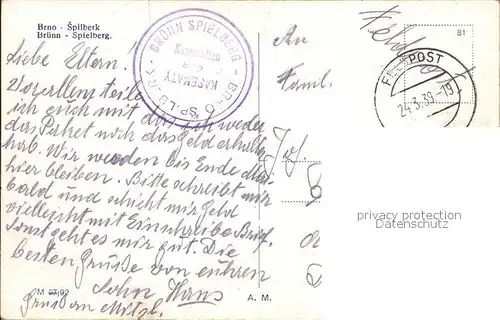 Brno - Špilberk
Brünn - Spielberg.
Liebe Eltern!
Vor allem teile
ich euch mit das ich weder
das Paket noch das Geld erhalten
hab. Wir werden bis Ende Mai
hier bleiben. Bitte schreibt mir
bald und schickt mir Geld
vielleicht mit Einschreibe Brief.
Sonst geht es mir gut. Die
besten Grüße von euhren
Sohn Hans
Gruß an Mitzl.
M 07192
A. M.
BRÜNN SPIELBERG - BRNO ŠPILBERK
Kasematten
KASEMATY
An
Famil.
Jos.
Feldpost
81
FELDPOST
24.3.39-19
privacy protection
Datenschutz